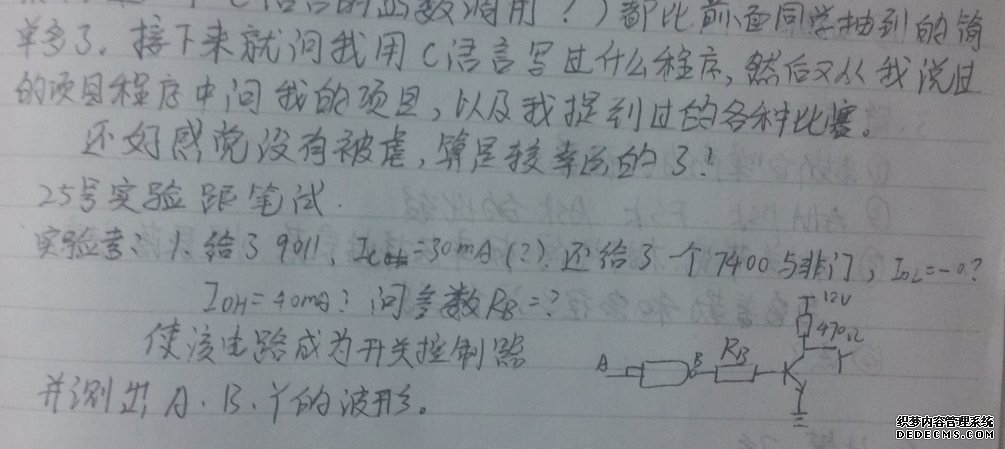 语言的函数调用？）都比前面同学抽到的简
单多了。接下来就问我用C语言写过什么程序，然后又从我说过
的项目程序中问我的项目，以及我提到过的各种比赛。
还好感觉没有被虐，算是较幸运的了！
25号实验跟笔试.
实验考：1.给了9011，=30mA(?).还给了一个7400与非门，IOL=-0.?
IOH=40mA？问参数RB=？
12V
470Ω
使该电路成为开关控制器
A B RB Y
并测出A.B.Y的波形。
织梦内容管理系统
DEDECMS.COM